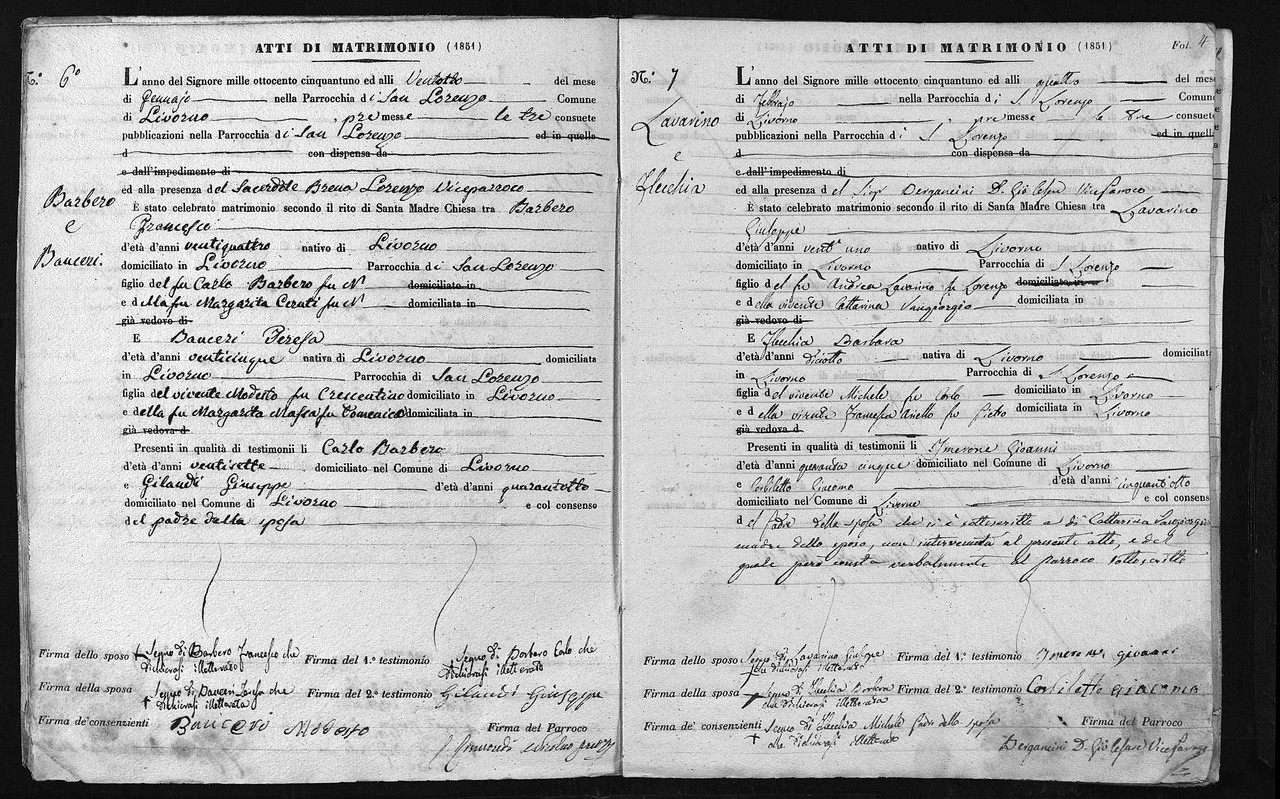 ATTI DI MATRIMONIO (1851)
N.° 6°
L'anno del Signore mille ottocento cinquantuno ed alli Ventotto del mese
di Gennajo nella Parrocchia di San Lorenzo Comune
di Livorno , premesse le tre consuete
pubblicazioni nella Parrocchia di San Lorenzo ed in quella
d con dispensa da
e dall'impedimento di
ed alla presenza del Sacerdote Brena Lorenzo Viceparroco
Barbero
e
Banceri.
È stato celebrato matrimonio secondo il rito di Santa Madre Chiesa tra Barbero
Francesco
d'età d'anni ventiquattro nativo di Livorno
domiciliato in Livorno Parrocchia di San Lorenzo
figlio del fu Carlo Barbero fu N domiciliato in
e della fu Margarita Ceruti fu N domiciliata in
già vedovo di
E Banceri Teresa
d'età d'anni venticinque nativa di Livorno domiciliata
in Livorno Parrocchia di San Lorenzo
figlia del vivente Modesto fu Crescentino domiciliato in Livorno
e della fu Margarita Massa fu Domenico domiciliata in
già vedova d
Presenti in qualità di testimonii li Carlo Barbero
d'età d'anni ventisette domiciliato nel Comune di Livorno
e Gilardi Giuseppe d'età d'anni quarantotto
domiciliato nel Comune di Livorno e col consenso
del padre della sposa
Firma dello sposo Segno di Barbero Francesco che
dichiarasi illetterato
Firma del 1.° testimonio Segno di Barbero Carlo che
dichiarasi illetterato
Firma della sposa Segno di Banceri Teresa che
dichiarasi illetterata
Firma del 2.° testimonio Gilardi Giuseppe
Firma de' consenzienti Banceri Modesto
Firma del Parroco
ATTI DI MATRIMONIO (1851) Fol. 4
N.° 7
Lavarino
e
L'anno del Signore mille ottocento cinquantuno ed alli quattro del mese
di Febbrajo nella Parrocchia di S. Lorenzo Comune
di Livorno , premesse le tre consuete
pubblicazioni nella Parrocchia di S. Lorenzo ed in quella
d con dispensa da
e dall'impedimento di
ed alla presenza del Sigr Dergancini D. Gio Cesare Viceparroco
È stato celebrato matrimonio secondo il rito di Santa Madre Chiesa tra Lavarino
Giuseppe
d'età d'anni vent'uno nativo di Livorno
domiciliato in Livorno Parrocchia di S. Lorenzo
figlio del fu Andrea Lavarino fu Lorenzo domiciliato in
e della vivente Cattarina Sangiorgio domiciliata in
già vedovo di
E Barbara
d'età d'anni diciotto nativa di Livorno domiciliata
in Livorno Parrocchia di S. Lorenzo e
figlia del vivente Michele fu Carlo domiciliato in Livorno
e della vivente Francesca Aniello fu Pietro domiciliata in Livorno
già vedova d
Presenti in qualità di testimonii li Imerone Gioanni
d'età d'anni quaranta cinque domiciliato nel Comune di Livorno
e Corbiletto Giacomo d'età d'anni cinquant'otto
domiciliato nel Comune di Livorno e col consenso
del Padre della sposa che si è sottoscritto e di Cattarina Sangiorgio
madre dello sposo, non intervenuta al presente atto, e del
quale però consta verbalmente al parroco sottoscritto
Firma dello sposo Segno di Lavarino Giuseppe
che dichiarasi illetterato
Firma del 1.° testimonio Imerone gioanni
Firma della sposa Segno di Barbara
che dichiarasi illetterata
Firma del 2.° testimonio Corbiletto giacomo
Firma de' consenzienti Segno di Michele Padre della sposa
che dichiarasi illetterato
Firma del Parroco
Dergancini D. Gio Cesare Viceparroco